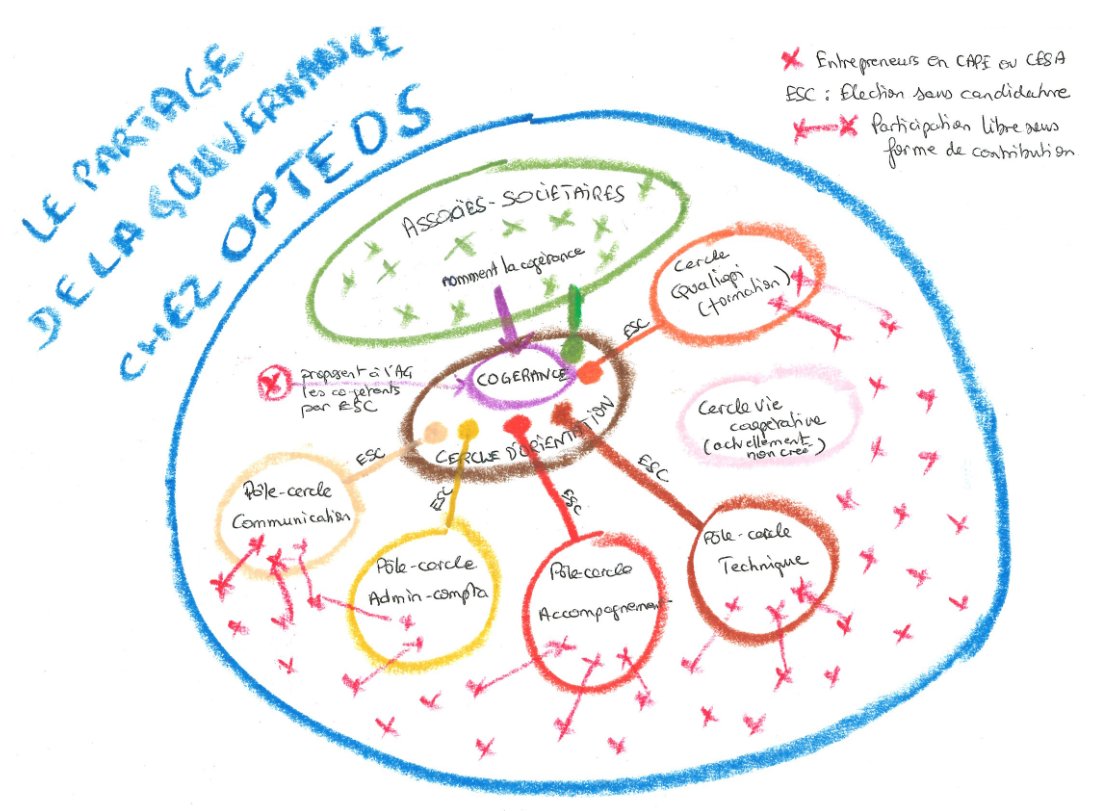 LE PARTAGE
DE LA GOUVERNANCE
CHEZ OPTEOS
Entrepreneurs en CAPE ou CESA
ESC : Election sans candidature
Participation libre sous
forme de contribution
ASSOCIÉS-SOCIÉTAIRES
nomment la cogérance
Cercle
Qualiopi
(formation)
ESC
COGERANCE
proposent à l'AG
les cogérants
par ESC
CERCLE D'ORIENTATION
Cercle vie
coopérative
(actuellement
non créé)
ESC
ESC
ESC
ESC
Pôle-cercle
Communication
Pôle-cercle
Admin-compta
Pôle-cercle
Accompagnement
Pôle-cercle
Technique